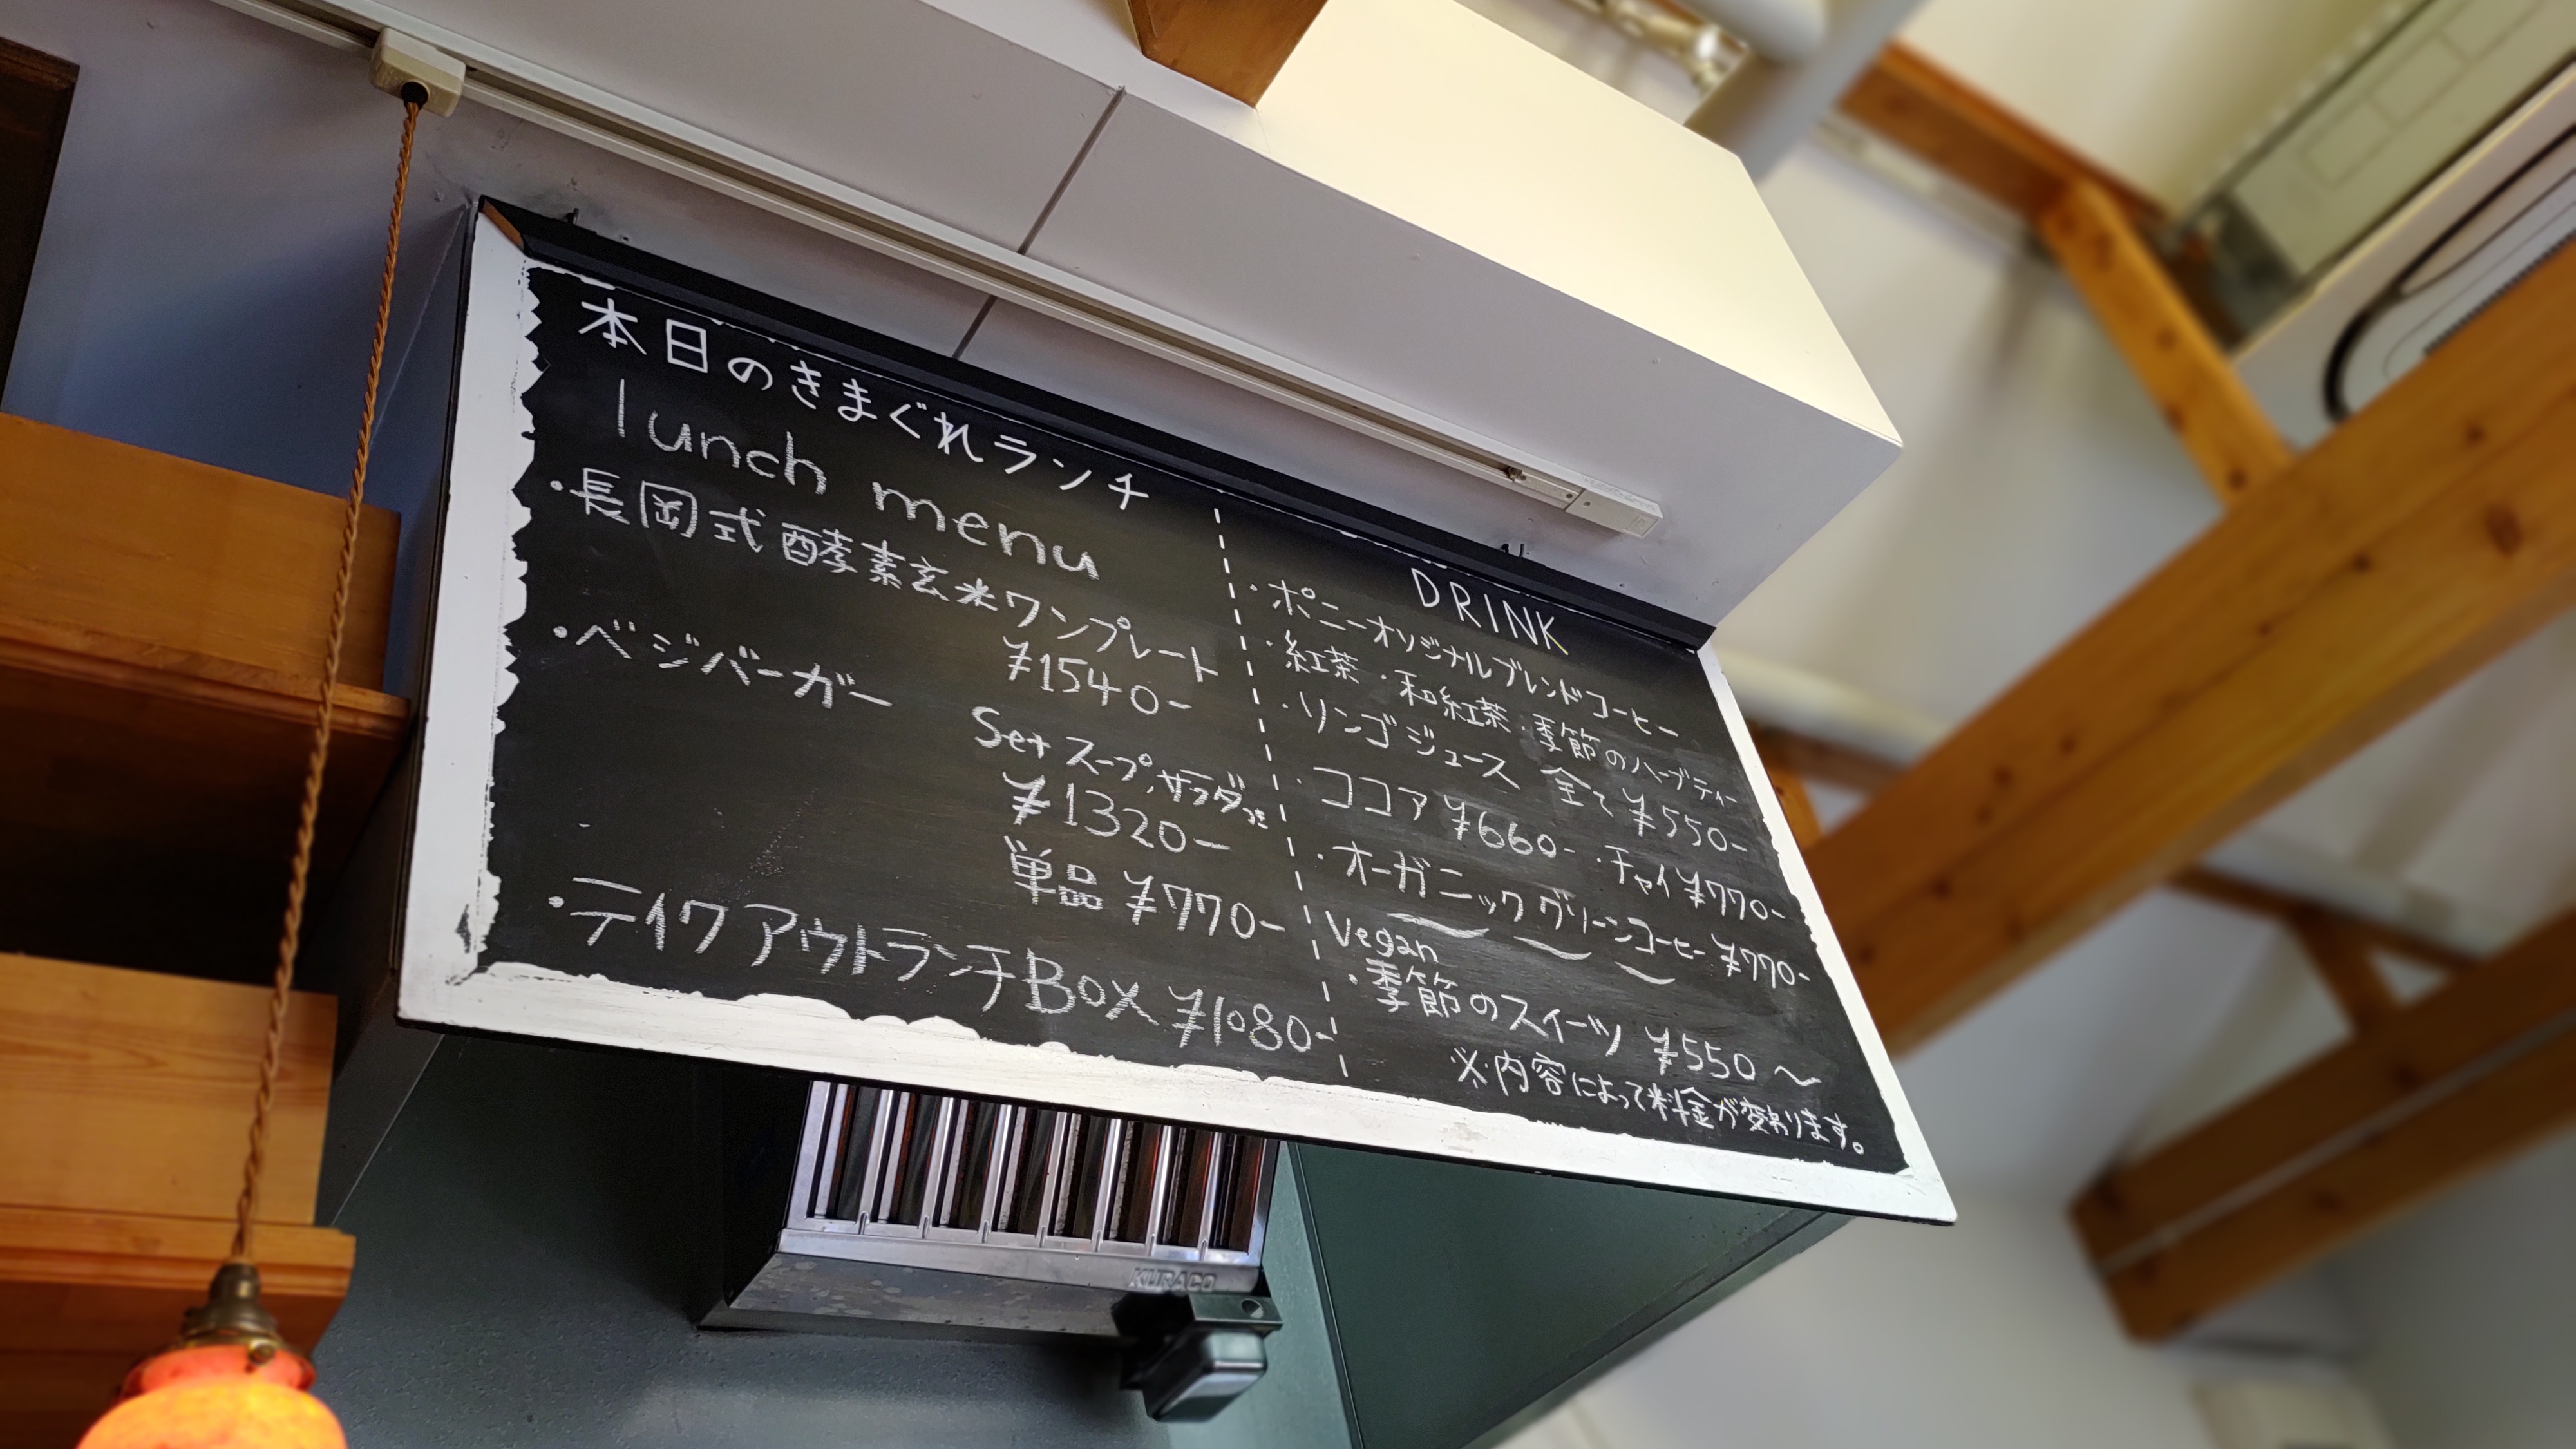 本日のきまぐれランチ
lunch menu
・長岡式酵素玄米ワンプレート
¥1540-
・ベジバーガー
Set スープ,サラダつき
¥1320-
単品 ¥770-
・テイクアウトランチBOX ¥1080-
DRINK
・ポニーオリジナルブレンドコーヒー
・紅茶・和紅茶・季節のハーブティー
・リンゴジュース 全て¥550-
・ココア ¥660-・チャイ¥770-
・オーガニックグリーンコーヒー ¥770-
Vegan
・季節のスイーツ ¥550〜
※内容によって料金が変わります。
KURACO